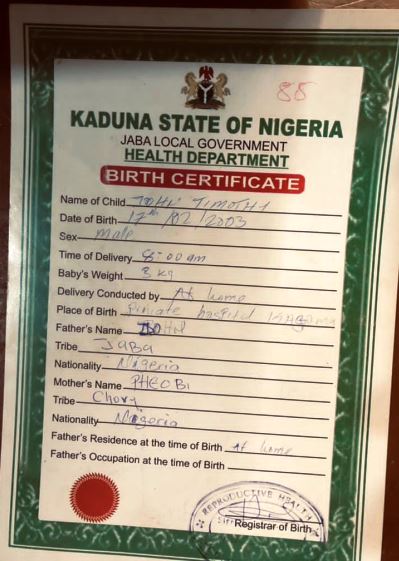 85
KADUNA STATE OF NIGERIA
JABA LOCAL GOVERNMENT
HEALTH DEPARTMENT
BIRTH CERTIFICATE
Name of Child JOHN TIMOTHY
Date of Birth 17th/02/2003
Sex male
Time of Delivery 8:00am
Baby's Weight 3kg
Delivery Conducted by At home
Place of Birth Private hospital
Father's Name JOHN
Tribe JABA
Nationality Nigeria
Mother's Name PHEOBI
Tribe Chory
Nationality Nigeria
Father's Residence at the time of Birth At home
Father's Occupation at the time of Birth
REPRODUCTIVE HEALTH
Registrar of Birth